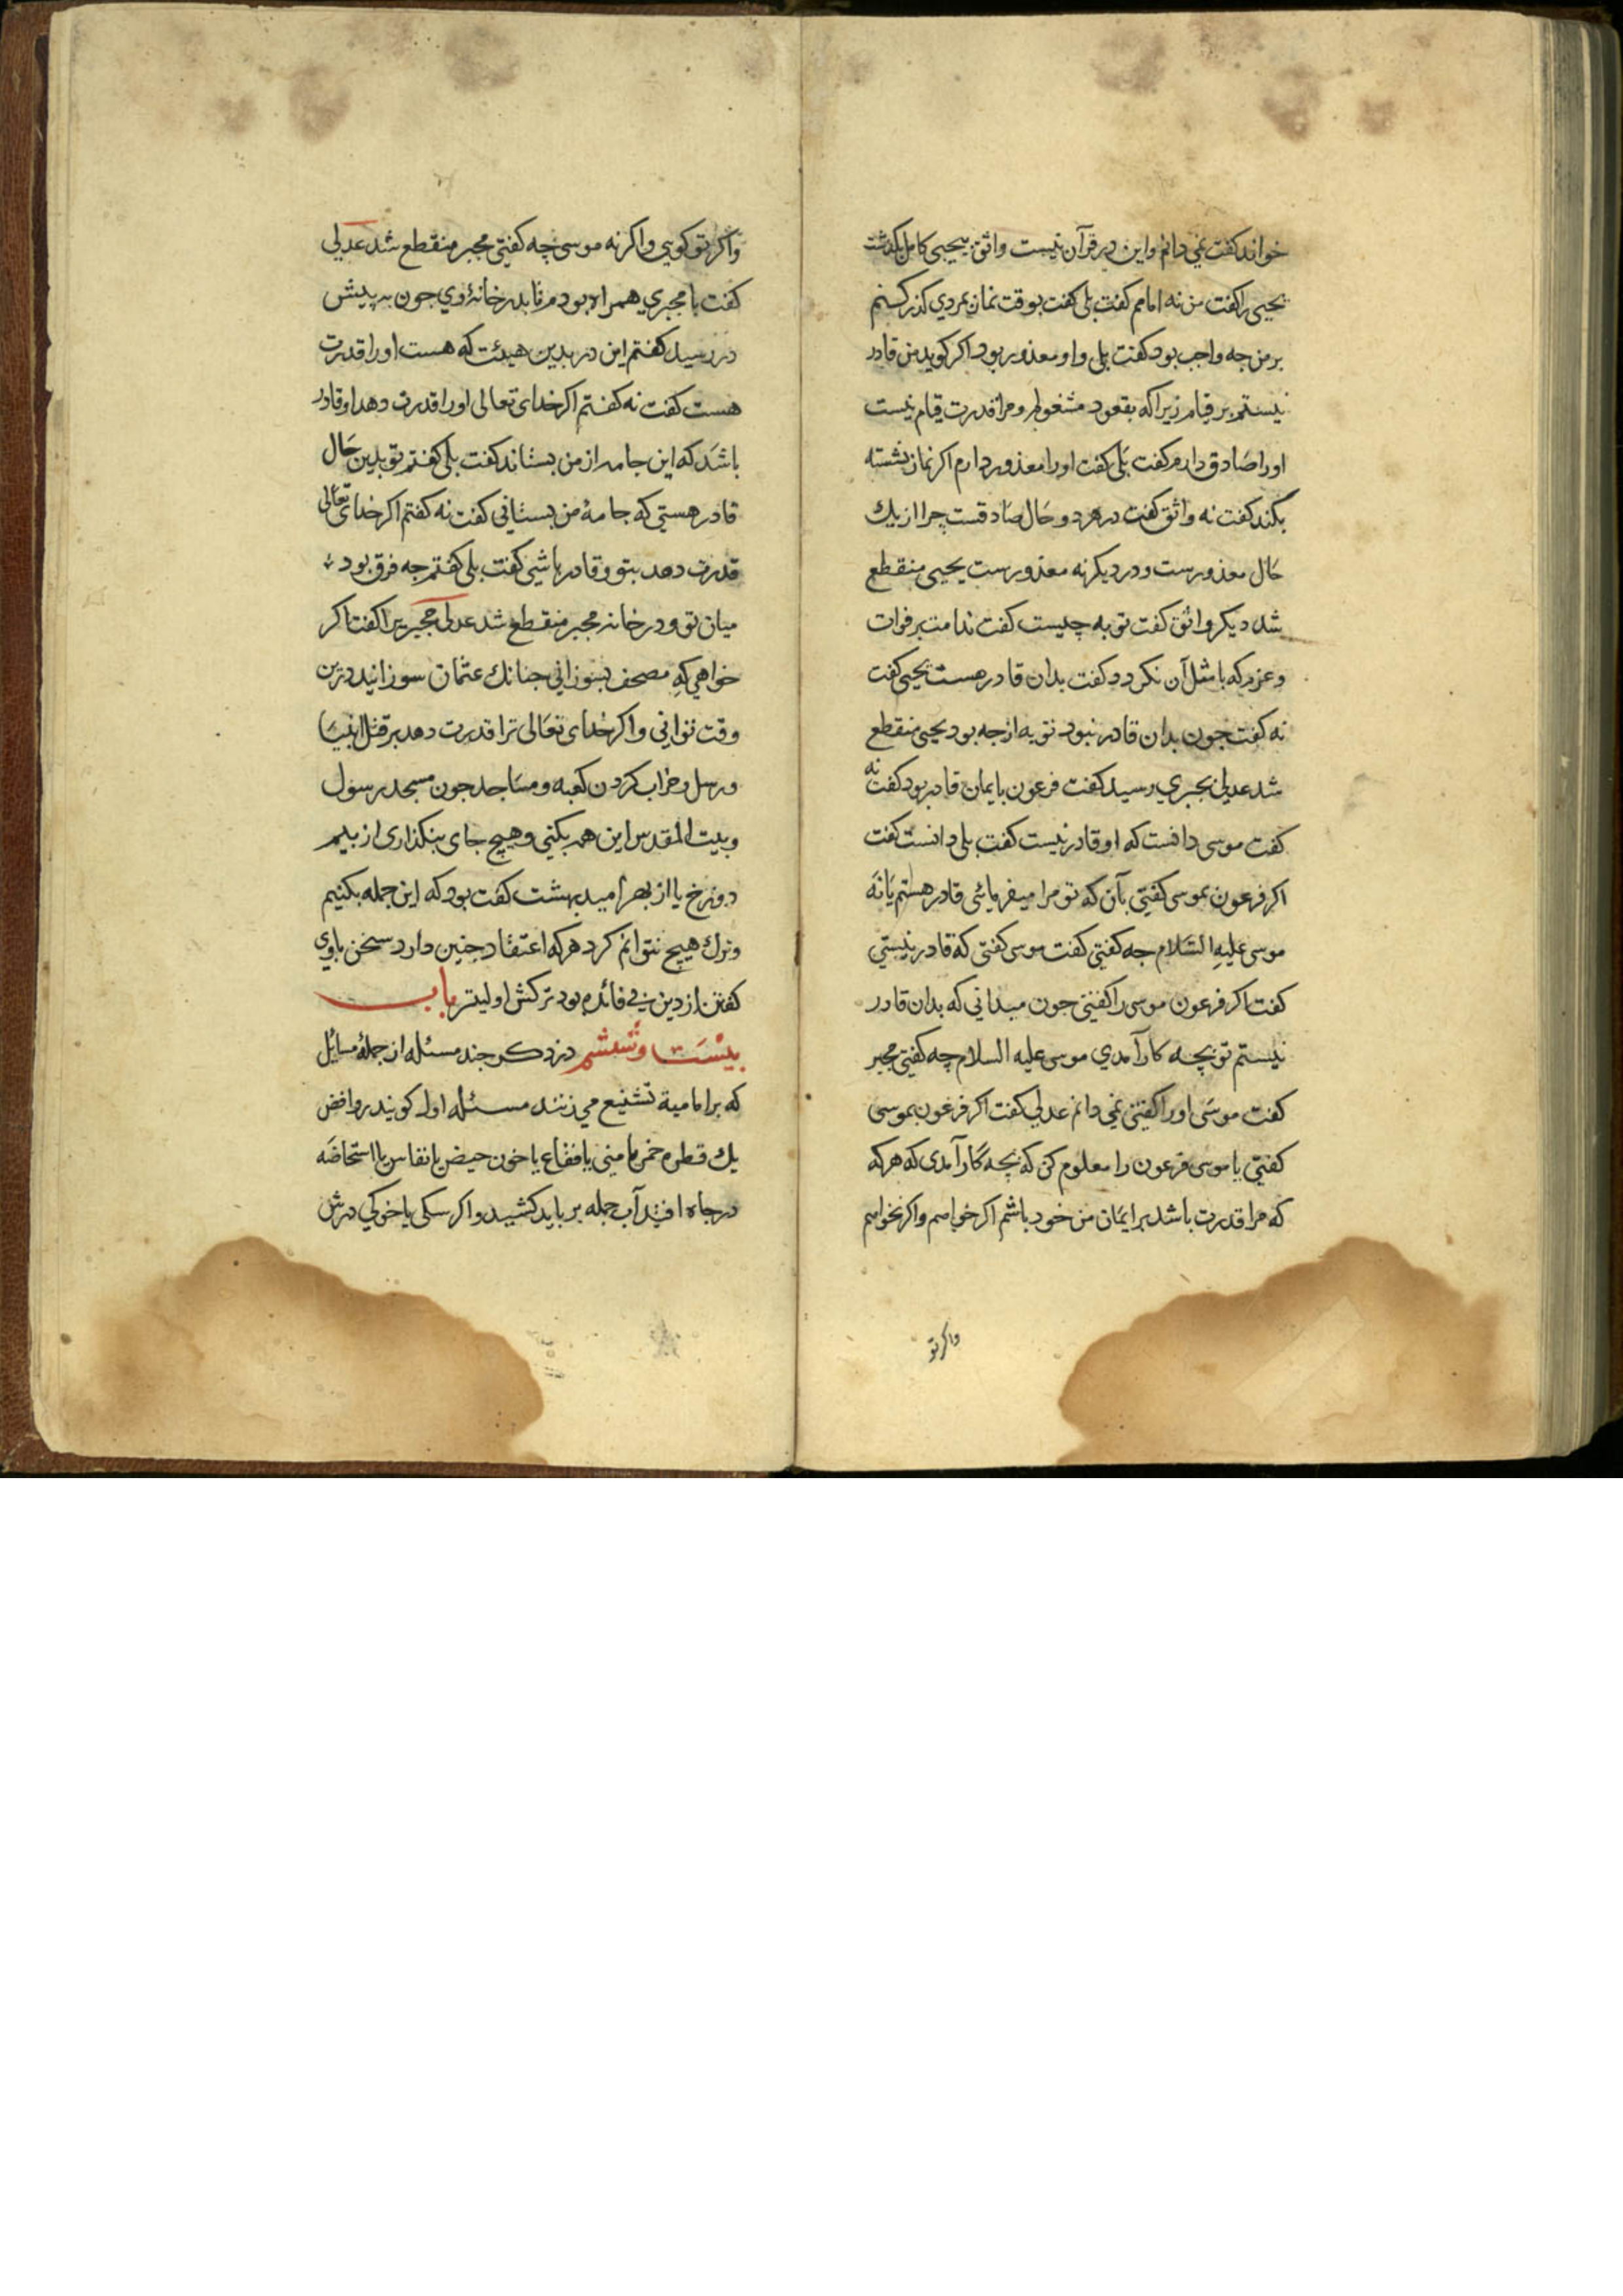 خواند کفت نمی دانم واین در قرآن نیست واثق بیحیی کامل بکذشت
یحیی را کفت من نه امامم کفت بلی کفت بوقت نماز بمردی کذر کنم
بر من چه واجب بود کفت بلی واو معذور بود اکر کوید من قادر
نیستم بر قیام زیرا که بقعود مشغولم ومرا قدرت قیام نیست
اورا صادق دارم کفت بلی کفت اورا معذور دارم اکر نماز نشسته
بکند کفت نه واثق کفت در هر دو حال صادقست چرا از یك
حال معذورست ودر دیکر نه معذورست یحیی منقطع
شد دیکر واثق کفت توبه چیست کفت ندامت بر فوات
وعزم که با مثل آن نکردد کفت بدان قادر هست یحیی کفت
نه کفت جون بدان قادر نبود توبه از جه بود یحیی منقطع
شد عدلی بجبری رسید کفت فرعون بایمان قادر بود کفت نه
کفت موسی دانست که او قادر نیست کفت بلی دانست کفت
اکر فرعون بموسی کفتی بآن که تو مرا میفرمائی قادر هستم یا نه
موسی علیه السلام جه کفتی کفت موسی کفتی که قادر نیستی
کفت اکر فرعون موسی را کفتی جون میدانی که بدان قادر
نیستم تو بچه کار آمدی موسی علیه السلام چه کفتی مجبر
کفت موسی اورا کفتی نمی دانم عدلی کفت اکر فرعون بموسی
کفتی یا موسی فرعون را معلوم کن که بچه کار آمدی که هر که
که مرا قدرت باشد بر ایمان من خود باشم اکر خواهم واکر نخواهم
واکر تو
واکر تو کویی واکر نه موسی چه کفتی مجبر منقطع شد عدلی
کفت با مجبری همراه بودم تا بدر خانهٔ وی جون به پیش
در رسید کفتم این در بدین هیئت که هست اورا قدرت
هست کفت نه کفتم اکر خدای تعالی اورا قدرت دهد او قادر
باشد که این جامه از من بستاند کفت بلی کفتم تو بدین حال
قادر هستی که جامهٔ من بستانی کفت نه کفتم اکر خدای تعالی
قدرت دهد بتو وقادر باشی کفت بلی کفتم جه فرق بود
میان تو ودر خانه مجبر منقطع شد عدلی مجبری را کفت اکر
خواهی که مصحف بسوزانی جنانك عثمان سوزانید درین
وقت توانی واکر خدای تعالی ترا قدرت دهد بر قتل انبیا
ورسل وخراب کردن کعبه ومساجد جون مسجد رسول
وبیت المقدس این همه بکنی وهیچ جای بنکذاری از بیم
دوزخ یا از بهر امید بهشت کفت بود که این جمله بکنیم
وترك هیچ نتوانم کرد هر که اعتقاد جنین دارد سخن باوی
کفتن از دین بی فائده بود ترکش اولیتر باب
بیست وششم در ذکر جند مسئله از جملهٔ مسایل
که بر امامیة تشنیع می زنند مسئله اول کویند روافض
یك قطره خمر یا منی یا فقاع یا خون حیض یا نفاس یا استحاضه
در جاه افتد آب جمله بر باید کشید واکر سکی یا خوکی درش